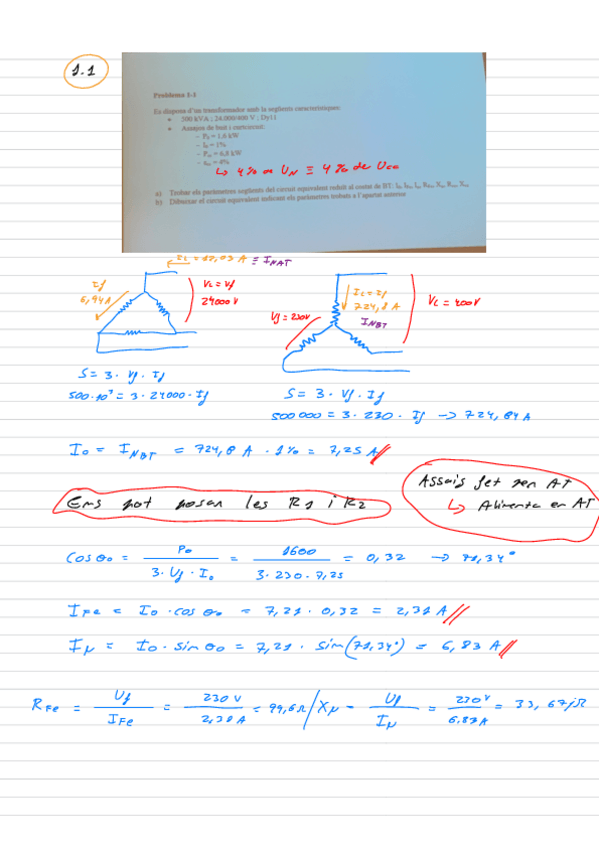 1.1
Problema 1-1
Es disposa d'un transformador amb la següents característiques:
• 500 kVA ; 24.000/400 V ; Dy11
• Assajos de buit i curtcircuit:
− P₀ = 1,6 kW
− I₀ = 1%
− Pcc = 6,8 kW
− εcc = 4%
↳ 4% de UN ≡ 4% de Ucc
a) Trobar els paràmetres següents del circuit equivalent reduït al costat de BT: I₀, IFe, Iμ, RFe, Xμ, Rcc, Xcc
b) Dibuixar el circuit equivalent indicant els paràmetres trobats a l'apartat anterior
IL = 12,03 A ≡ INAT
If
6,94A
VL = Vf
24000 V
IL = If
724,8 A
INBT
Vf = 230V
VL = 400V
S = 3 · Vf · If
500·10³ = 3 · 24000 · If
S = 3 · Vf · If
500 000 = 3 · 230 · If → 724,64 A
I0 = INBT = 724,8 A · 1% = 7,25 A
Assais fet per AT
↳ Alimenta en AT
Ens pot posar les R1 i R2
Cosθ0 = P0 / 3·Uf·I0 = 1600 / 3·230·7,25 = 0,32 → 71,34°
IFe = I0 · cosθ0 = 7,21 · 0,32 = 2,31 A
Iμ = I0 · sinθ0 = 7,21 · sim(71,34°) = 6,83 A
RFe = Uf / IFe = 230 V / 2,31A = 99,6Ω / Xμ = Uf / Iμ = 230V / 6,83A = 33,67jΩ